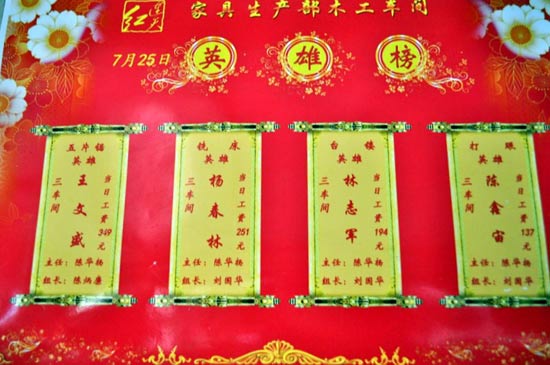 家具生产部木工车间
红
7月25日
英雄榜
五片锯
英雄
王文盛
三车间
当日工资349元
主任：陈华杨
组长：陈炳廉
铣床
英雄
杨春林
三车间
当日工资251元
主任：陈华杨
组长：刘国华
台镂
英雄
林志军
三车间
当日工资194元
主任：陈华杨
组长：刘国华
打眼
英雄
陈鑫宙
三车间
当日工资137元
主任：陈华杨
组长：刘国华